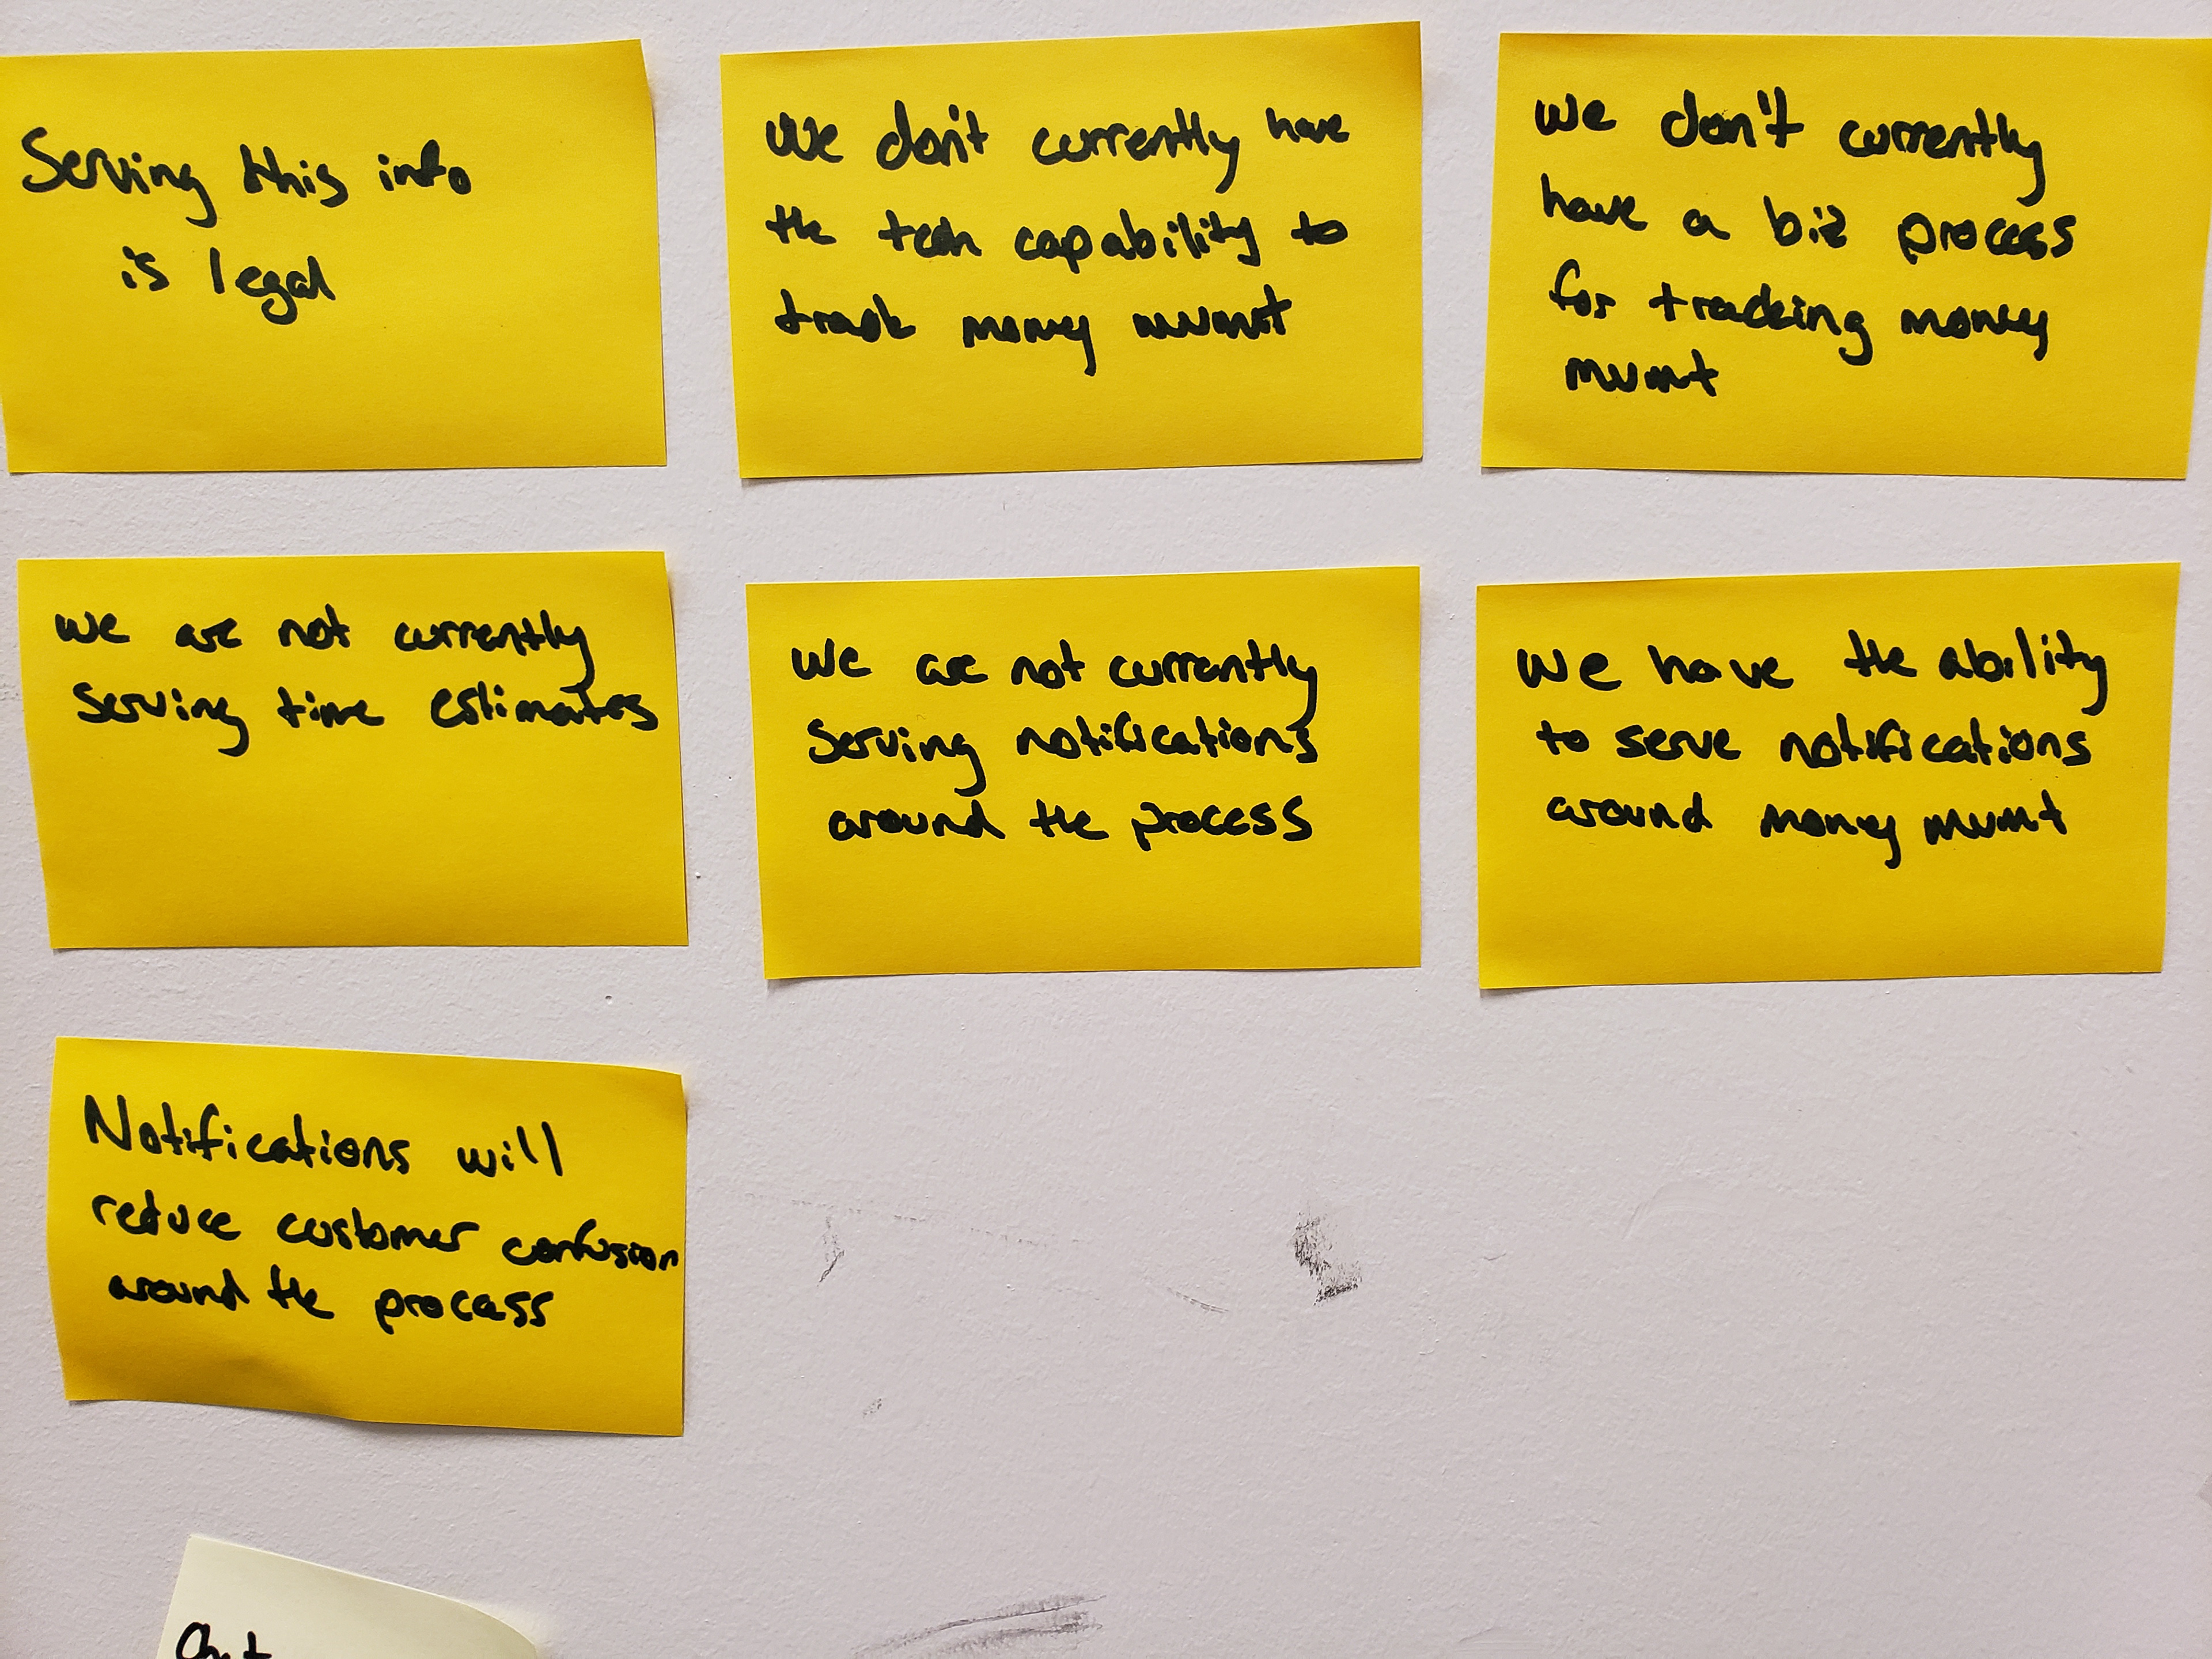 Serving this info
is legal
We don't currently have
the tech capability to
track money mvmnt
We don't currently
have a biz process
for tracking money
mvmt
We are not currently
serving time estimates
We are not currently
serving notifications
around the process
We have the ability
to serve notifications
around money mvmt
Notifications will
reduce customer confusion
around the process